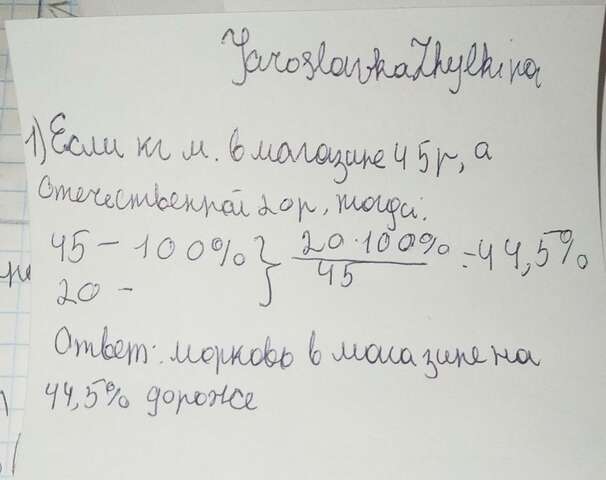 YaroslavkaZhylkina
1) Если кг м. в магазине 45р, а
Отечественной 20р, тогда:
45 - 100% } 20·100% / 45 = 44,5%
20 -
Ответ: морковь в магазине на
44,5% дороже